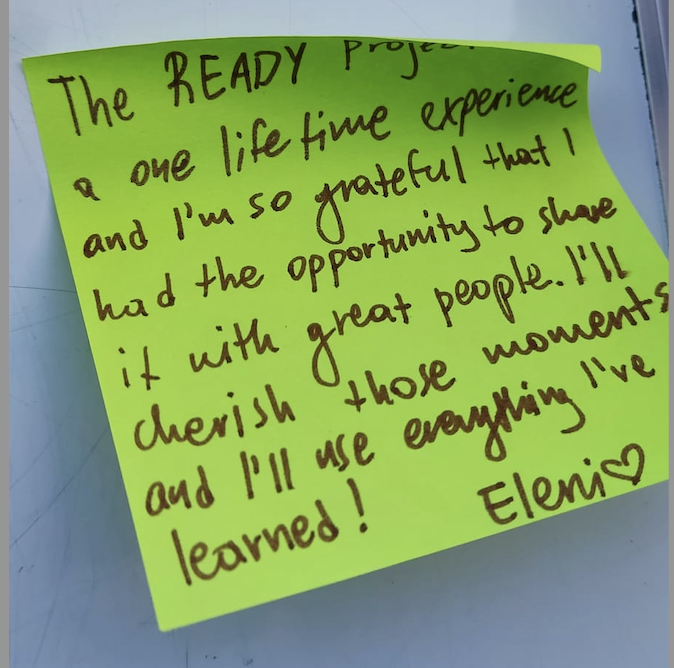 The READY Project
a one life time experience
and I'm so grateful that I
had the opportunity to share
it with great people. I'll
cherish those moments
and I'll use everything I've
learned! Eleni♡